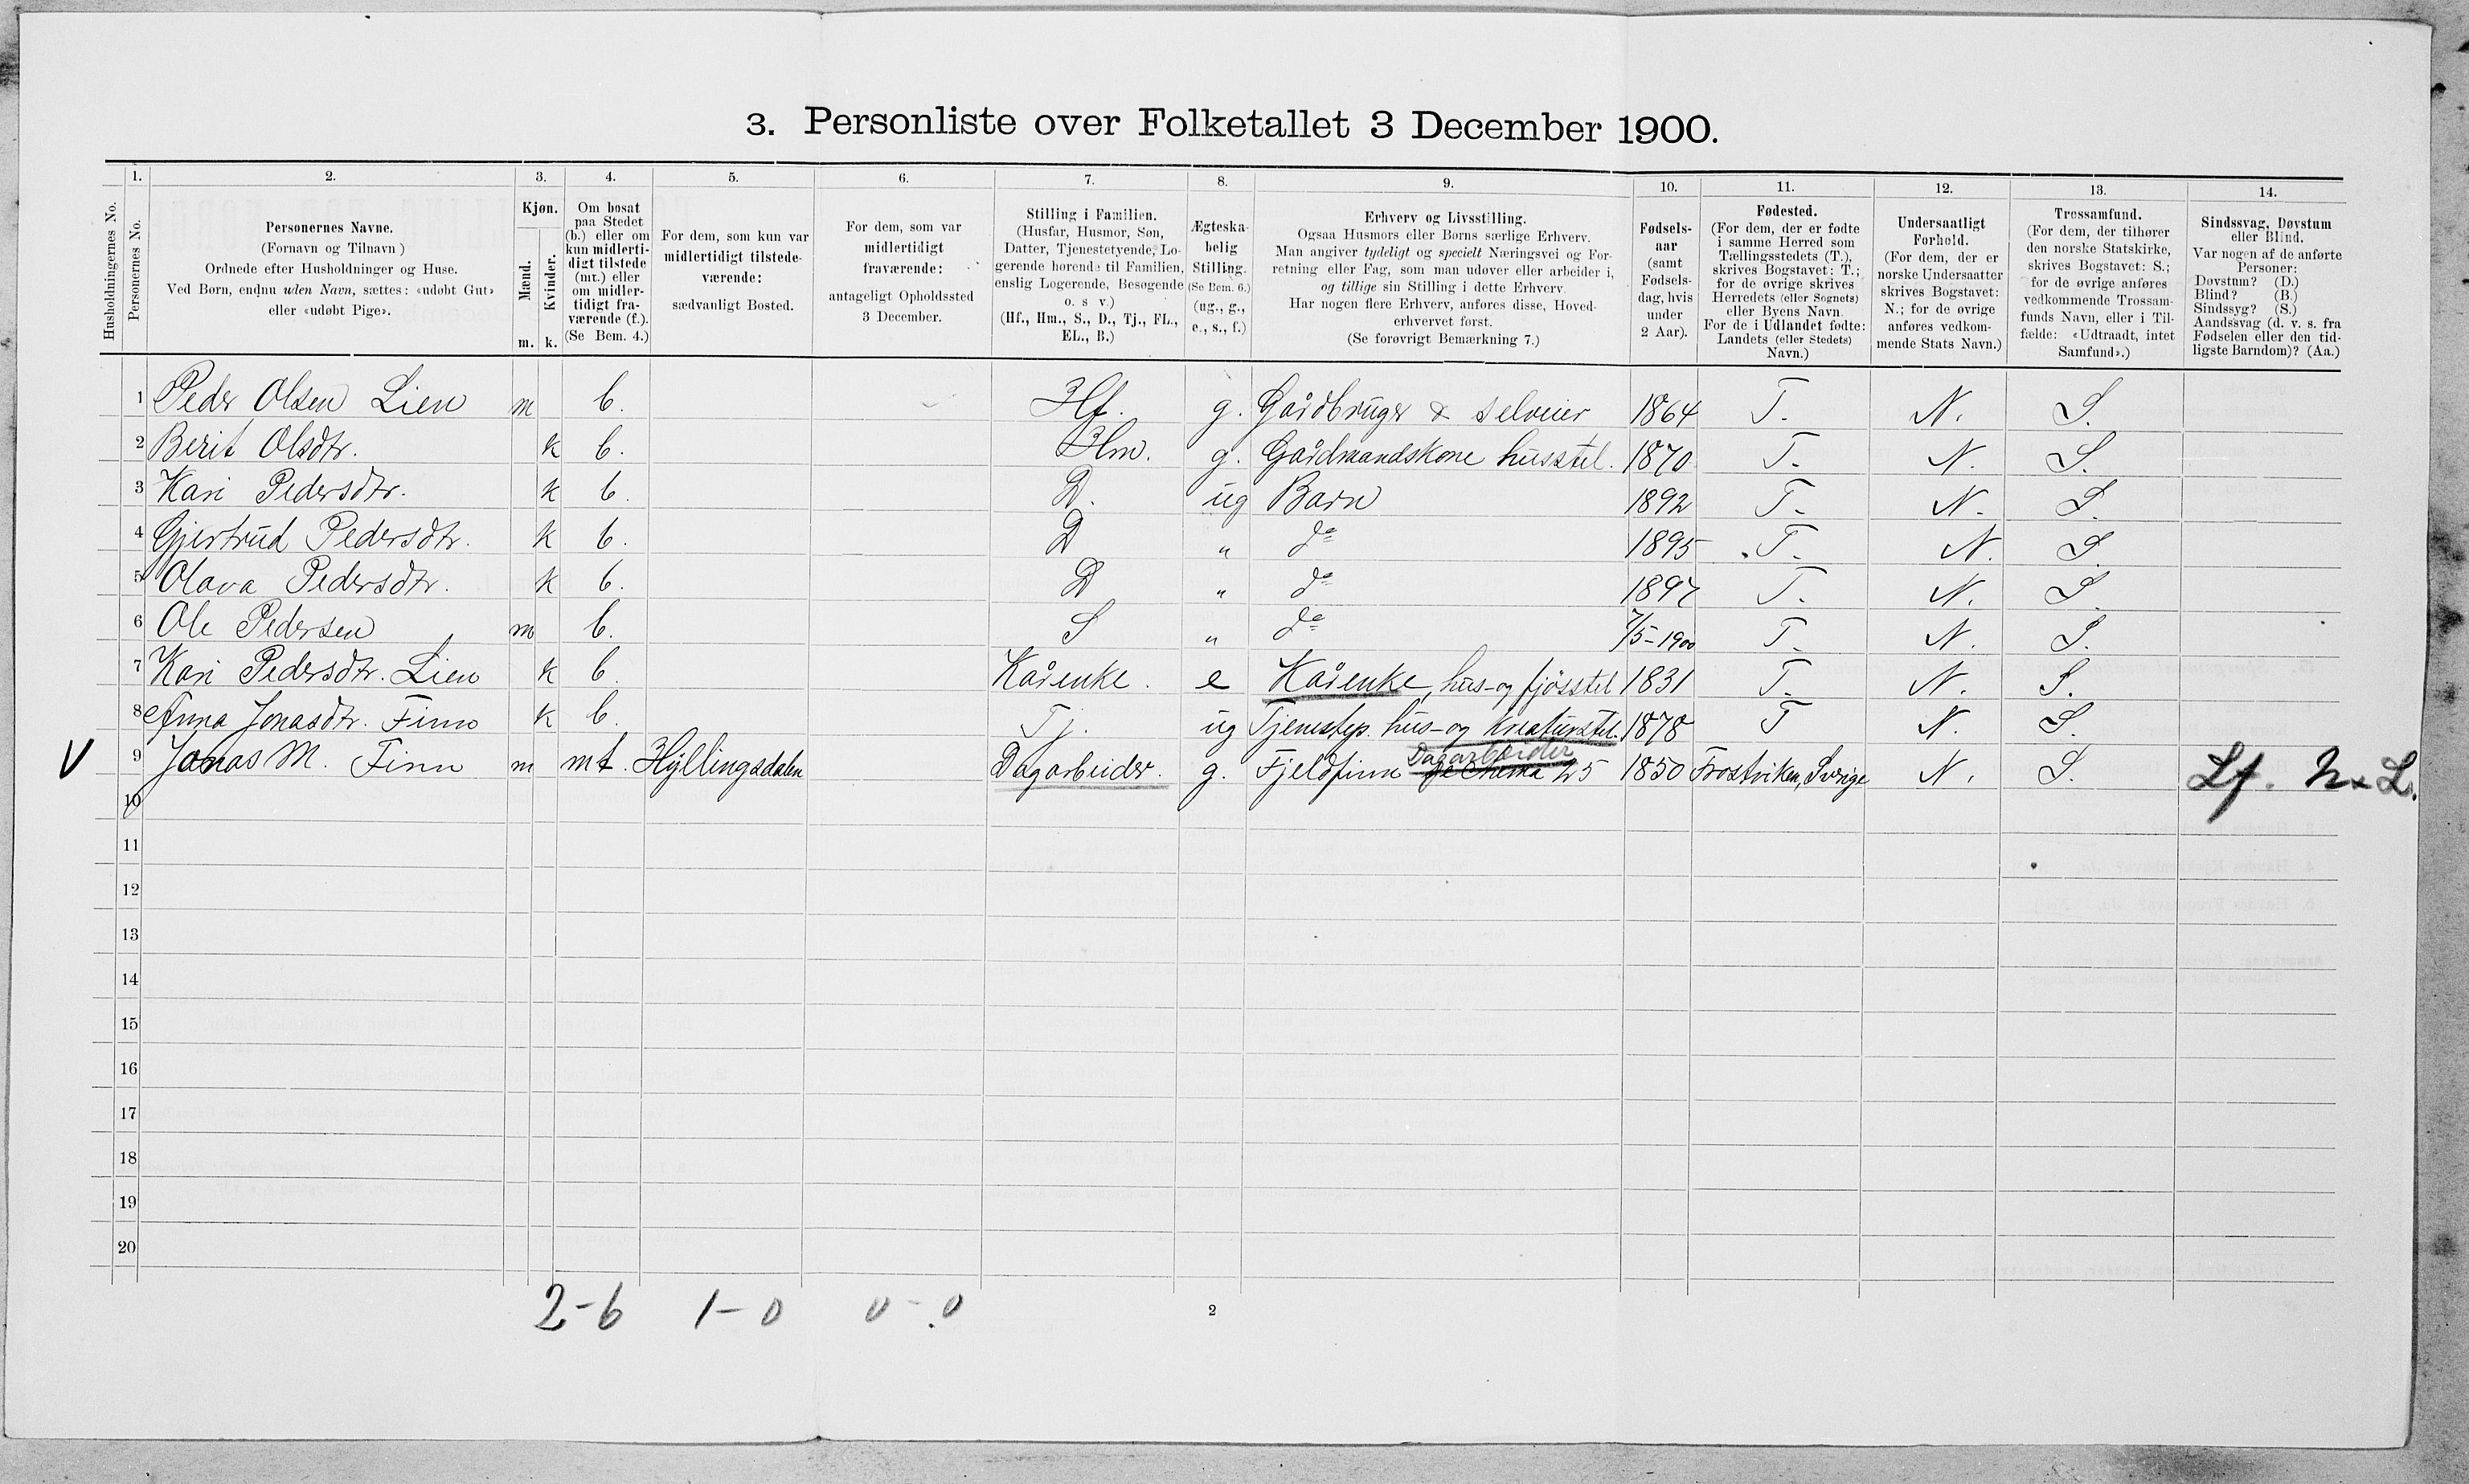 3. Personliste over Folketallet 3 December 1900.
1. 2. 3. 4. 5. 6. 7. 8. 9. 10. 11. 12. 13. 14.
Husholdningernes No.
Personernes No.
Personernes Navne.
(Fornavn og Tilnavn )
Ordnede efter Husholdninger og Huse.
Ved Børn, endnu uden Navn, sættes: «udøbt Gut»
eller «udøbt Pige».
Kjøn.
Mænd.
Kvinder.
m. k.
Om bosat
paa Stedet
(b.) eller om
kun midlerti-
digt tilstede
(mt.) eller
om midler-
tidigt fra-
værende (f.).
(Se Bem. 4.)
For dem, som kun var
midlertidigt tilstede-
værende:
sædvanligt Bosted.
For dem, som var
midlertidigt
fraværende:
antageligt Opholdssted
3 December.
Stilling i Familien.
(Husfar, Husmor, Søn,
Datter, Tjenestetyende, Lo-
gerende hørende til Familien,
enslig Logerende, Besøgende
o. s v.)
(Hf., Hm., S., D., Tj., FL.,
EL., B.)
Ægteska-
belig
Stilling.
(Se Bem. 6.)
(ug., g.,
e., s., f.)
Erhverv og Livsstilling.
Ogsaa Husmors eller Børns særlige Erhverv.
Man angiver tydeligt og specielt Næringsvei og For-
retning eller Fag, som man udøver eller arbeider i,
og tillige sin Stilling i dette Erhverv.
Har nogen flere Erhverv, anføres disse, Hoved-
erhvervet først.
(Se forøvrigt Bemærkning 7.)
Fødsels-
aar
(samt
Fødsels-
dag, hvis
under
2 Aar).
Fødested.
(For dem, der er fødte
i samme Herred som
Tællingsstedets (T.),
skrives Bogstavet: T.;
for de øvrige skrives
Herredets (eller Sognets)
eller Byens Navn.
For de i Udlandet fødte:
Landets (eller Stedets)
Navn.)
Undersaatligt
Forhold.
(For dem, der er
norske Undersaatter
skrives Bogstavet:
N.; for de øvrige
anføres vedkom-
mende Stats Navn.)
Trossamfund.
(For dem, der tilhører
den norske Statskirke,
skrives Bogstavet: S.;
for de øvrige anføres
vedkommende Trossam-
funds Navn, eller i Til-
fælde: «Udtraadt, intet
Samfund».)
Sindssvag, Døvstum
eller Blind.
Var nogen af de anførte
Personer:
Døvstum? (D.)
Blind? (B.)
Sindssyg? (S.)
Aandssvag (d. v. s. fra
Fødselen eller den tid-
ligste Barndom)? (Aa.)
1 Peder Olsen Lien m b. Hf. g. Gårdbruger & selveier 1864 T. N. S.
2 Berit Olsdtr. k b. Hm. g. Gårdmandskone husstel. 1870 T. N. S.
3 Kari Pedersdtr. k b. D. ug Barn 1892 T. N. S.
4 Gjertrud Pedersdtr. k b. D " do 1895 T. N. S.
5 Olava Pedersdtr. k b. D " do 1897 T. N. S.
6 Ole Pedersen m b. S " do 7/5-1900 T. N. S.
7 Kari Pedersdtr. Lien k b. Kårenke. e Kårenke, hus- og fjösstel 1831 T. N. S.
8 Anna Jonasdtr. Finn k b. Tj. ug Tjenestep. hus- og Kreaturstel. 1878 T N. S.
Dagarbeider
V 9 Jonas M. Finn m mt. Hyllingsdalen Dagarbeider. g. Fjeldfinn 25 1850 Frostviken, Sverige N. S. Lf. N x L.
10
11
12
13
14
15
16
17
18
19
20
2-6 1-0 0-0
2